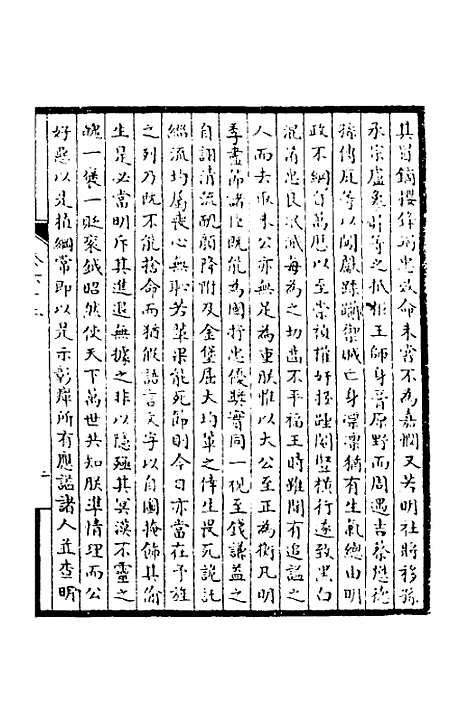 其冒鏑攖鋒竭忠效命未嘗不為嘉憫又若明社將移孫
承宗盧象昇等之抵拒王師身膏原野而周遇吉蔡懋德
孫傳庭等以闖獻蹂躪禦城亡身凜凜猶有生氣總由明
政不綱自萬曆以至崇禎權奸接踵閹豎橫行遂致黑白
混淆忠良泯滅每為之切齒不平福王時雖間有追諡之
人而去取未公亦無足為重朕惟以大公至正為衡凡明
季盡節諸臣既能為國抒忠優獎實同一視至錢謙益之
自詡清流靦顏降附及金堡屈大均輩之倖生畏死詭託
緇流均屬喪心無恥若輩果能死節則今日亦當在予旌
之列乃既不能捨命而猶假語言文字以自圖掩飾其偷
生是必當明斥其進退無據之非以隱殛其冥漠不靈之
魄一褒一貶袞鉞昭然使天下萬世共知朕準情理而公
好惡以是植綱常即以是示彰癉所有應諡諸人並查明